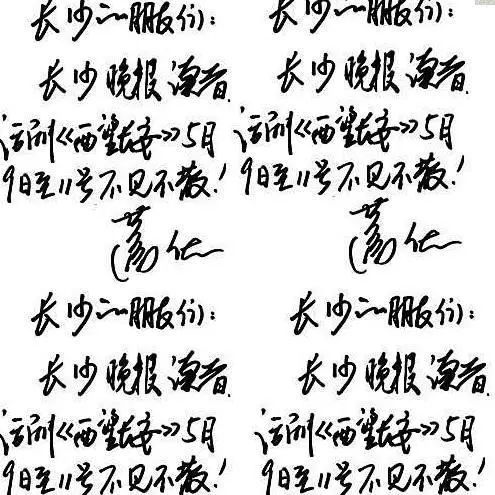 长沙的朋友们:
长沙晚报读者.
话剧《西望长安》5月
9日至11号不见不散!
葛优
长沙的朋友们:
长沙晚报读者.
话剧《西望长安》5月
9日至11号不见不散!
葛优
长沙的朋友们:
长沙晚报读者.
话剧《西望长安》5月
9日至11号不见不散!
长沙的朋友们:
长沙晚报读者.
话剧《西望长安》5月
9日至11号不见不散!